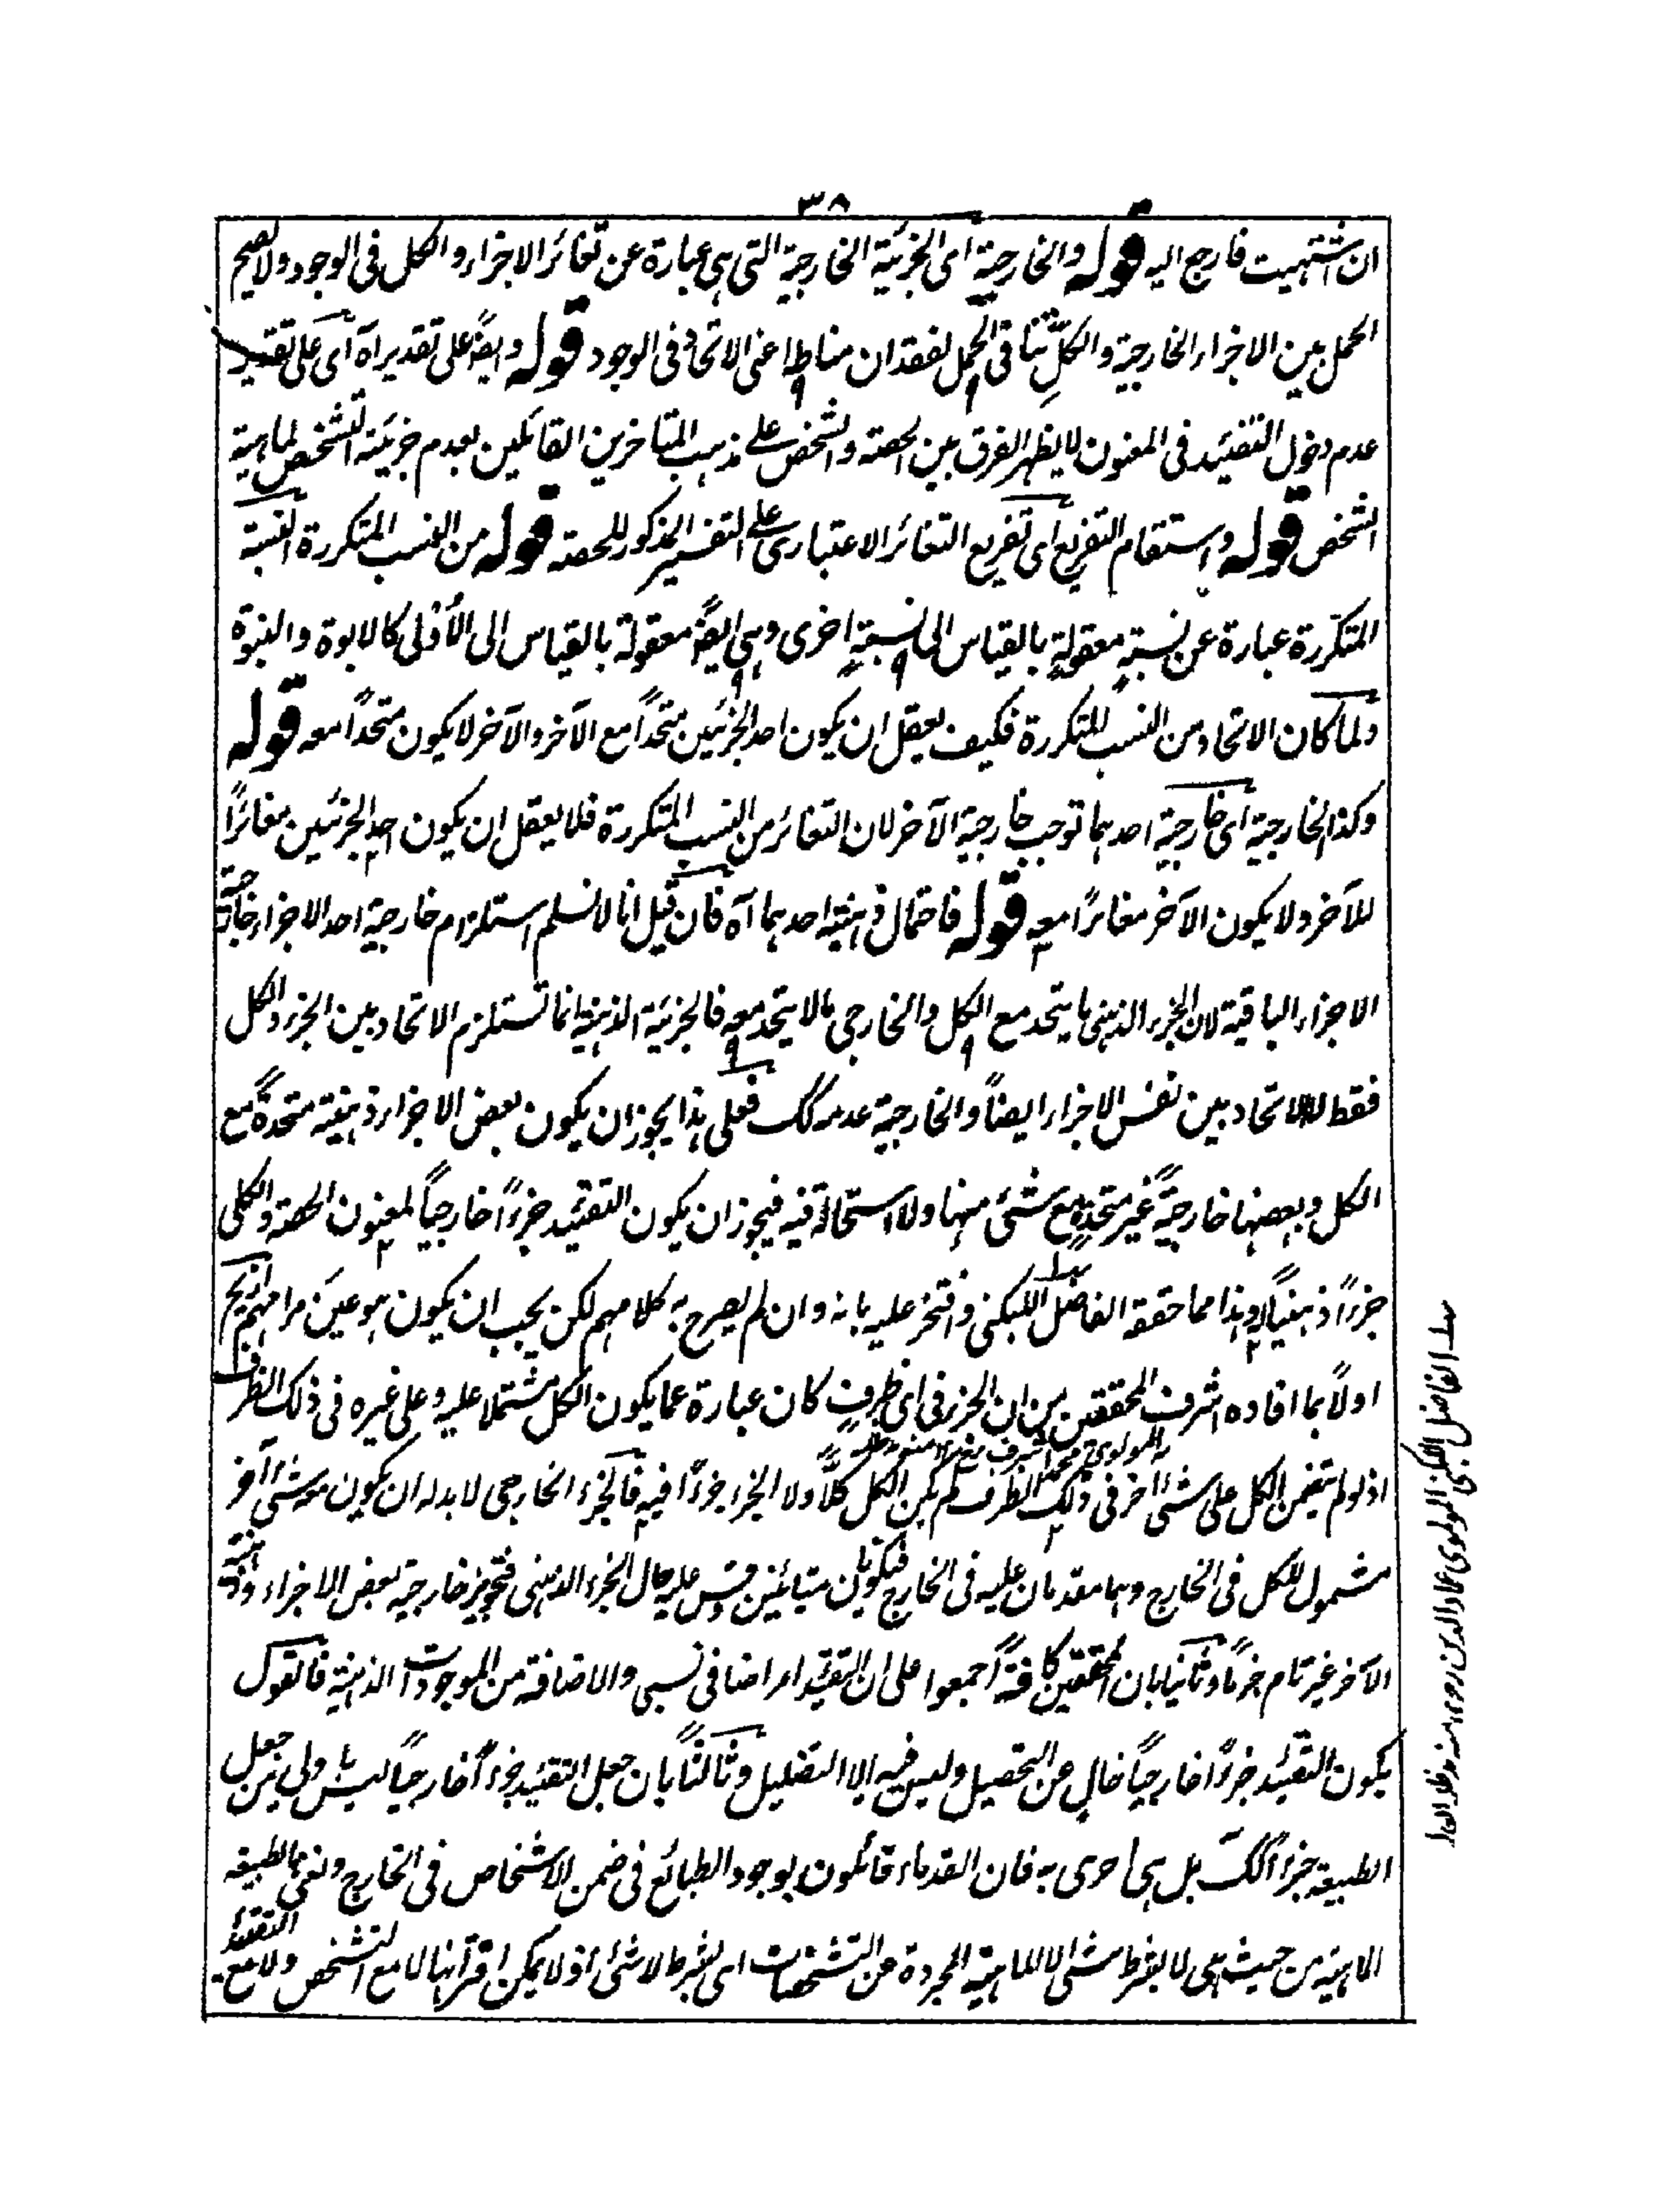 ٣٨
ان اشتهيت فارجع اليه قوله والخارجية اى الجزئية الخارجية التى هى عبارة عن تغائر الاجزاء والكل فى الوجود ولا يصح
الحمل بين الاجزاء الخارجية والكل تنافى الحمل لفقدان مناطه اعنى الاتحاد فى الوجود قوله وايضًا على تقدير آه اى على تقدير
عدم دخول التقئيد فى المعنون لا يظهر الفرق بين الحصة والشخص على مذهب المتاخرين القائلين بعدم جزئية التشخص لماهية
الشخص قوله واستقام التفريع اى تفريع التغائر الاعتبارى على التفسير المذكور للحصة قوله من النسب المتكررة النسبة
المتكررة عبارة عن نسبةٍ معقولةٍ بالقياس الى نسبةٍ اخرى وهى ايضًا معقولة بالقياس الى الأولى كالابوة والبنوة
ولما كان الاتحاد من النسب المتكررة فكيف يعقل ان يكون احد الجزئين متحدًا مع الآخر والآخر لا يكون متحدًا معه قوله
وكذا الخارجية اى خارجية احدهما توجب خارجية الآخر لان التغائر من النسب المتكررة فلا يعقل ان يكون احد الجزئين مغائرًا
للآخر ولا يكون الآخر مغائرًا معه قوله فاحتمال ذهنية احدهما آه فان قيل انا لا نسلم استلزام خارجية احد الاجزاء خارجية
الاجزاء الباقية لان الجزء الذهنى ما يتحد مع الكل والخارجى ما لا يتحد معه فالجزئية الذهنية انما تستلزم الاتحاد بين الجزء والكل
فقط لا الاتحاد بين نفس الاجزاء ايضاً والخارجية عدمه كك فعلى هذا يجوز ان يكون بعض الاجزاء ذهنية متحدةً مع
الكل وبعضها خارجيةً غير متحدةٍ مع شئ منها ولا استحالة فيه فيجوز ان يكون التقئيد جزءًا خارجياً لمعنون الحصة والكلى
جزءًا ذهنياً لها وهذا مما حققه الفاضل اللبكنى وافتخر عليه بانه وان لم يصرح به كلامهم لكن يجب ان يكون هو عين مرامهم ازيح
اولاً بما افاده اشرف المحققين من ان الجزء فى اى ظرفٍ كان عبارة عما يكون الكل مشتملا عليه وعلى غيره فى ذلك الظرف
المولوى محمد اشرف
اذ لو لم يتضمن الكل على شئ آخر فى ذلك الظرف لم يكن الكل كلًّا ولا الجزء جزءًا فيه فالجزء الخارجى لا بد له ان يكون معه شئ آخر
مشمول للكل فى الخارج وهما مقدمان عليه فى الخارج فيكونان متبائنين وقس عليه حال الجزء الذهنى فتجويز خارجية بعض الاجزاء وذهنية
الآخر غير تام جزمًا وثانيا بان المحققين كافةً اجمعوا على ان التقئيد امر اضافى نسبى والاضافة من الموجودات الذهنية فالقول
بكون التقئيد جزءًا خارجياً خالٍ عن التحصيل وليس فيه الا التضليل وثالثًا بان جعل التقئيد جزءًا خارجياً ليس باولى من جعل
الطبيعة جزءاً كك بل هى احرى به فان القدماء قائلون بوجود الطبائع فى ضمن الاشخاص فى الخارج ونعنى بالطبيعة
الماهية من حيث هى لا بشرط شئ لا الماهية المجردة عن التشخصات اى بشرط لا شئ اذ لا يمكن اقترانها لا مع التشخص ولا مع التقئيد
الفاضل اللبكنى المولوى عماد الدين